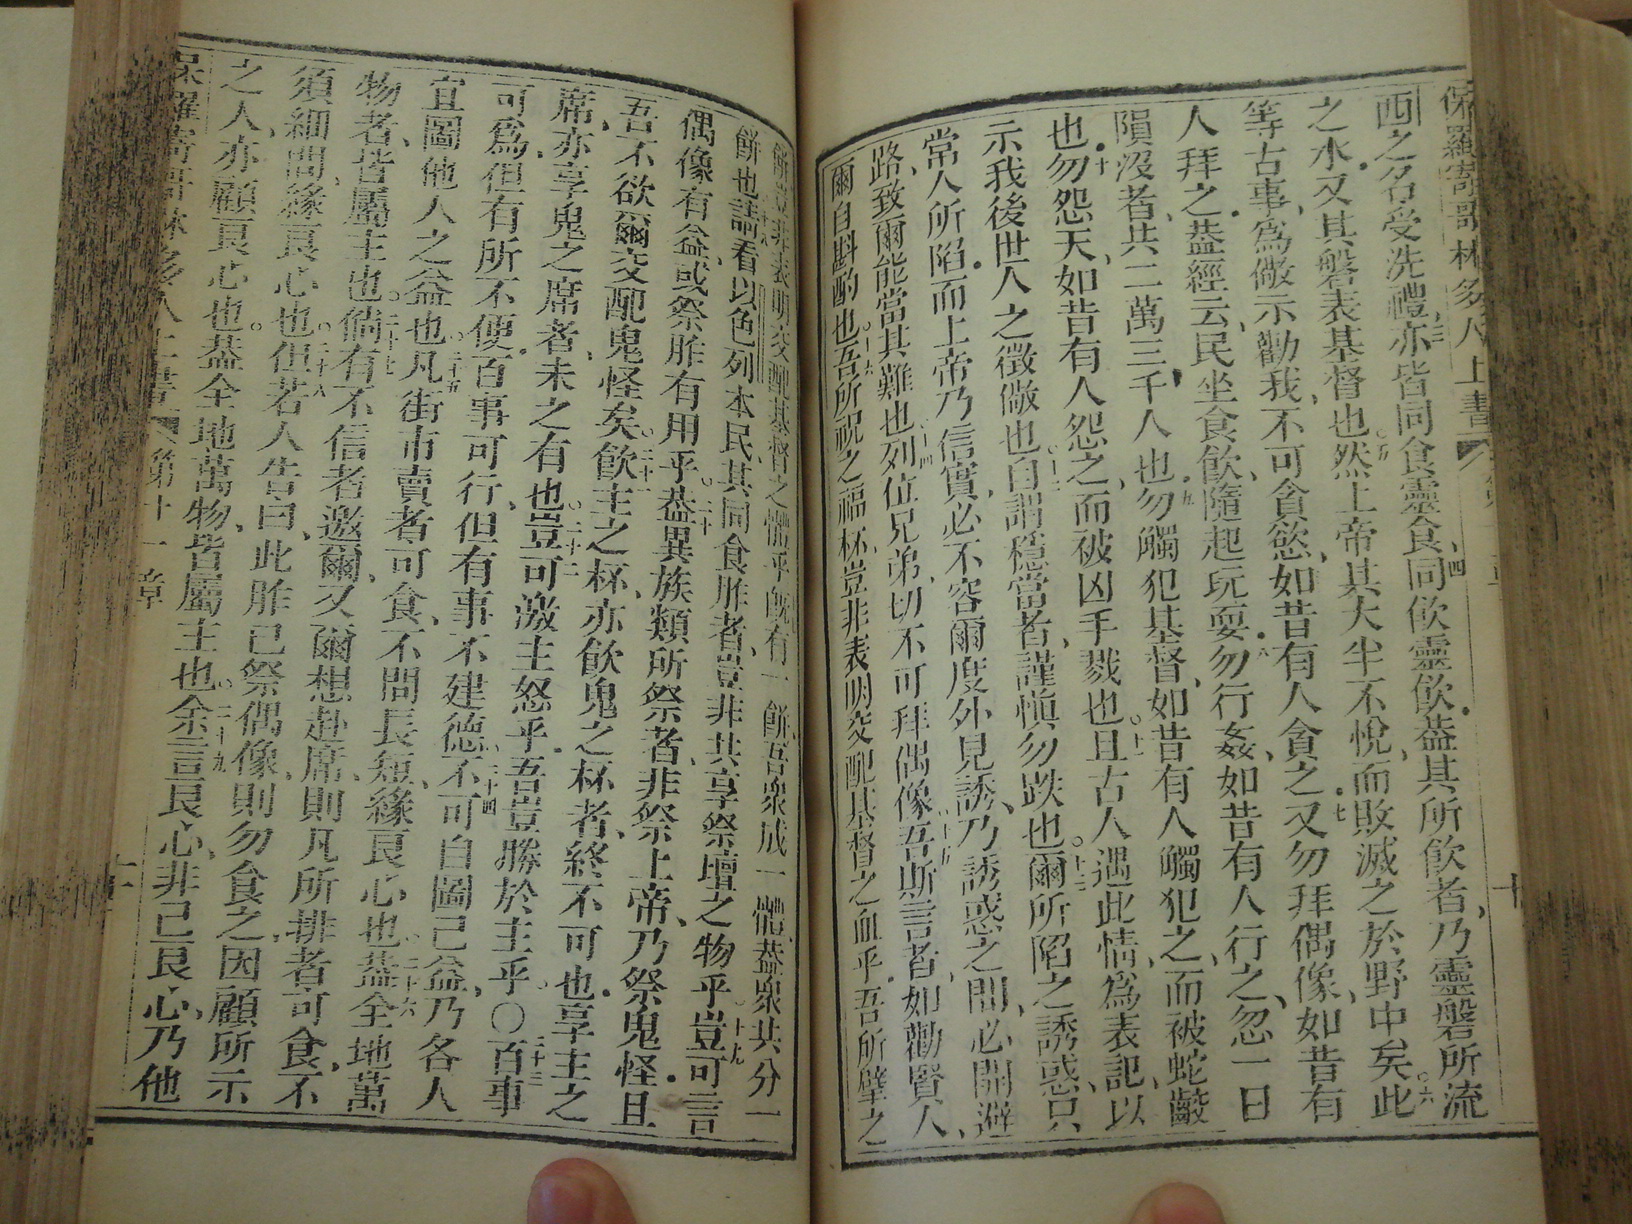 保羅寄哥林多人上書 十
西之名受洗禮、三亦皆同食靈食、四同飲靈飲、蓋其所飲者、乃靈磐所流
之水、又其磐表基督也。五然上帝其大半不悅、而敗滅之於野中矣。六此
等古事、為儆示勸我、不可貪慾、如昔有人貪之。七又勿拜偶像、如昔有
人拜之、蓋經云、民坐食飲、隨起玩耍。八勿行姦、如昔有人行之、忽一日
隕沒者、共二萬三千人也。九勿觸犯基督、如昔有人觸犯之、而被蛇齩
也。十勿怨天、如昔有人怨之、而破凶手戮也。十一且古人遇此情、為表記、以
示我後世人之徵儆也。十二自謂穩當者、謹慎勿跌也。十三爾所陷之誘惑、只
常人所陷、而上帝乃信實、必不容爾度外見誘、乃誘惑之間、必開避
路、致爾能當其難也。十四列位兄弟、切不可拜偶像。十五吾斯言者、如勸賢人、
爾自斟酌也。十六吾所祝之福杯、豈非表明交配基督之血乎、吾所擘之
餅、豈非表明交配基督之體乎、十七既有一餅、吾眾成一體、蓋眾共分一
餅也。十八請看以色列本民、其同食胙者、豈非共享祭壇之物乎。十九豈可言
偶像有益、或祭胙有用乎。二十蓋異族類所祭者、非祭上帝、乃祭鬼怪、且
吾不欲爾交配鬼怪矣。二十一飲主之杯、亦飲鬼之杯者、終不可也。享主之
席、亦享鬼之席者、未之有也。二十二豈可激主怒乎、吾豈勝於主乎。〇二十三百事
可為、但有所不便、百事可行、但有事不建德。二十四不可自圖己益、乃各人
宜圖他人之益也。二十五凡街市賣者可食、不問長短、緣良心也。二十六蓋全地萬
物者、皆屬主也。二十七倘有不信者邀爾、又爾想赴席、則凡所排者可食、不
須細問、緣良心也。二十八但若人告曰、此胙已祭偶像、則勿食之、因顧所示
之人、亦顧良心也、蓋全地萬物、皆屬主也。二十九余言良心、非己良心、乃他
保羅寄哥林多人上書 第十一章 十一